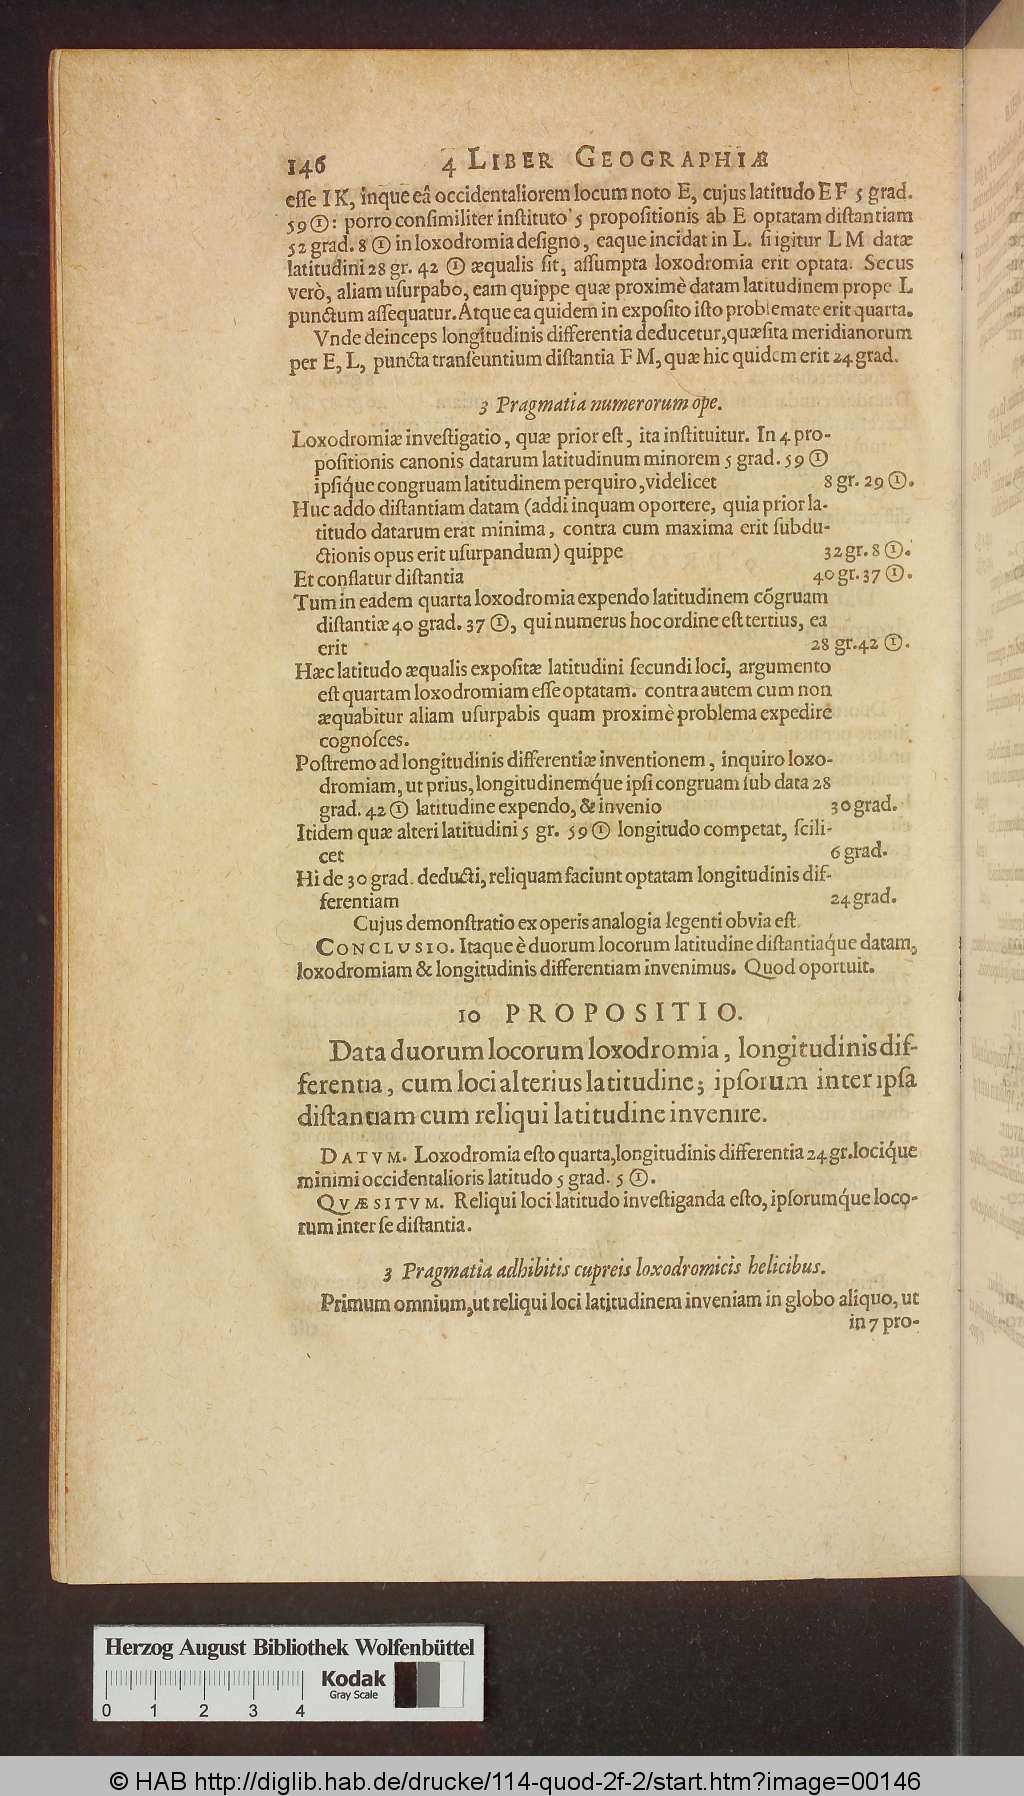 146 4 LIBER GEOGRAPHIÆ
eſſe IK, inque eâ occidentaliorem locum noto E, cujus latitudo EF 5 grad.
59 ①: porro conſimiliter inſtituto 5 propoſitionis ab E optatam diſtantiam
52 grad. 8 ① in loxodromia deſigno, eaque incidat in L. ſi igitur LM datæ
latitudini 28 gr. 42 ① æqualis ſit, aſſumpta loxodromia erit optata. Secus
verò, aliam uſurpabo, eam quippe quæ proximè datam latitudinem prope L
punctum aſſequatur. Atque ea quidem in expoſito iſto problemate erit quarta.
Vnde deinceps longitudinis differentia deducetur, quæſita meridianorum
per E, L, puncta tranſeuntium diſtantia FM, quæ hic quidem erit 24 grad.
3 Pragmatia numerorum ope.
Loxodromiæ inveſtigatio, quæ prior eſt, ita inſtituitur. In 4 pro-
poſitionis canonis datarum latitudinum minorem 5 grad. 59 ①
ipſiq́ue congruam latitudinem perquiro, videlicet 8 gr. 29 ①.
Huc addo diſtantiam datam (addi inquam oportere, quia prior la-
titudo datarum erat minima, contra cum maxima erit ſubdu-
ctionis opus erit uſurpandum) quippe 32 gr. 8 ①.
Et conflatur diſtantia 40 gr. 37 ①.
Tum in eadem quarta loxodromia expendo latitudinem cõgruam
diſtantiæ 40 grad. 37 ①, qui numerus hoc ordine eſt tertius, ea
erit 28 gr. 42 ①.
Hæc latitudo æqualis expoſitæ latitudini ſecundi loci, argumento
eſt quartam loxodromiam eſſe optatam. contra autem cum non
æquabitur aliam uſurpabis quam proximè problema expedire
cognoſces.
Poſtremo ad longitudinis differentiæ inventionem, inquiro loxo-
dromiam, ut prius, longitudinemq́ue ipſi congruam ſub data 28
grad. 42 ① latitudine expendo, & invenio 30 grad.
Itidem quæ alteri latitudini 5 gr. 59 ① longitudo competat, ſcili-
cet 6 grad.
Hi de 30 grad. deducti, reliquam faciunt optatam longitudinis dif-
ferentiam 24 grad.
Cujus demonſtratio ex operis analogia legenti obvia eſt.
CONCLUSIO. Itaque è duorum locorum latitudine diſtantiaq́ue datam,
loxodromiam & longitudinis differentiam invenimus. Quod oportuit.
10 PROPOSITIO.
Data duorum locorum loxodromia, longitudinis dif-
ferentia, cum loci alterius latitudine; ipſorum inter ipſa
diſtantiam cum reliqui latitudine invenire.
DATVM. Loxodromia eſto quarta, longitudinis differentia 24 gr. lociq́ue
minimi occidentalioris latitudo 5 grad. 5 ①.
QVÆSITVM. Reliqui loci latitudo inveſtiganda eſto, ipſorumq́ue loco-
rum inter ſe diſtantia.
3 Pragmatia adhibitis cupreis loxodromicis helicibus.
Primum omnium, ut reliqui loci latitudinem inveniam in globo aliquo, ut
in 7 pro-
Herzog August Bibliothek Wolfenbüttel
Kodak
Gray Scale
0 1 2 3 4
© HAB http://diglib.hab.de/drucke/114-quod-2f-2/start.htm?image=00146